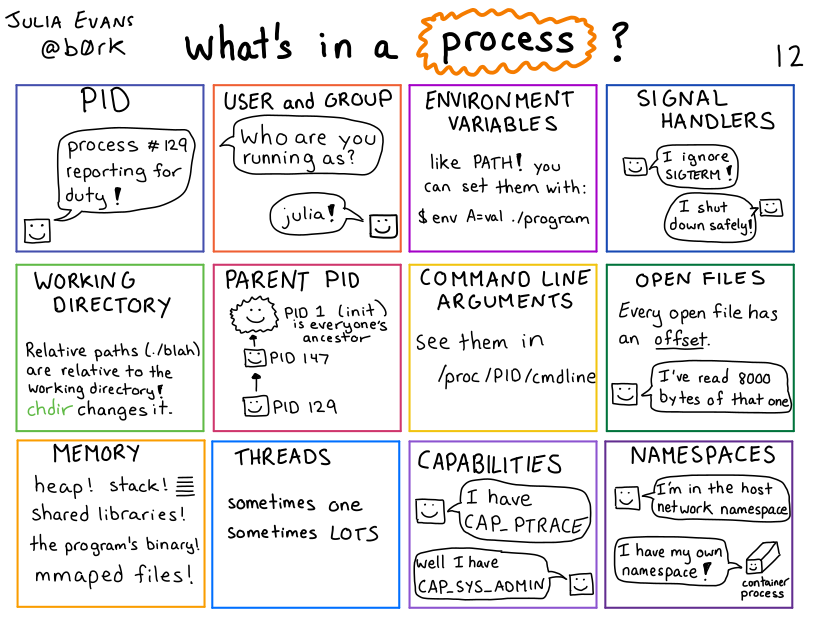 JULIA EVANS
@b0rk
what's in a process ?
12
PID
process #129
reporting for
duty!
USER and GROUP
Who are you
running as?
julia!
ENVIRONMENT
VARIABLES
like PATH! you
can set them with:
$ env A=val ./program
SIGNAL
HANDLERS
I ignore
SIGTERM!
I shut
down safely!
WORKING
DIRECTORY
Relative paths (./blah)
are relative to the
working directory!
chdir changes it.
PARENT PID
PID 1 (init)
is everyone's
ancestor
PID 147
PID 129
COMMAND LINE
ARGUMENTS
see them in
/proc/PID/cmdline
OPEN FILES
Every open file has
an offset.
I've read 8000
bytes of that one
MEMORY
heap! stack!
shared libraries!
the program's binary!
mmaped files!
THREADS
sometimes one
sometimes LOTS
CAPABILITIES
I have
CAP_PTRACE
well I have
CAP_SYS_ADMIN
NAMESPACES
I'm in the host
network namespace
I have my own
namespace!
container
process